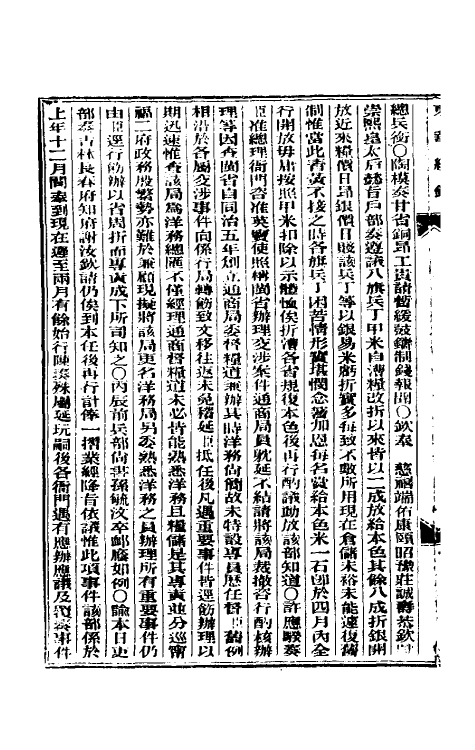 總兵銜○陶模奏甘省銅昂工貴請暫緩鼓鑄制錢報聞○欽奉 慈禧端佑康頤昭豫莊誠壽恭欽
崇熙皇太后懿旨戶部奏遵議八旗兵丁甲米自漕糧改折以來皆以二成放給本色其餘八成折銀開
放近來糧價日昂銀價日賤該兵丁等以銀易米虧折實多每致不敷所用現在倉儲未裕未能遽復舊
制惟當此青黃不接之時各旗兵丁困苦情形實堪憫念著加恩每名賞給本色米一石卽於四月內全
行開放毋庸按照甲米扣除以示體恤俟折漕各省規復本色後再行酌議勻放該部知道○許應騤奏
臣准總理衙門咨准英寶使照稱閩省辦理交涉案件通商局員躭延不結請將該局裁撤咨行酌核辦
理等因查閩省自同治五年創立通商局委督糧道兼辦其時洋務尙簡故未特設專員歷任督臣循例
相沿於各屬交涉事件向係行局轉飭致文移往返未免稽延臣抵任後凡遇重要事件皆逕飭辦理以
期迅速惟查該局爲洋務總匯不僅經理通商督糧道未必皆能熟悉洋務且糧儲是其專責並分巡甯
福二府政務殷繁勢亦難於兼顧現擬將該局更名洋務局另委熟悉洋務之員辦理所有重要事件仍
由臣逕行飭辦以省周折而專責成下所司知之○丙辰前兵部尙書孫毓汶卒卹廕如例○諭本日吏
部奏吉林長春府知府謝汝欽請仍俟到本任後再行計俸一摺業經降旨依議惟此項事件該部係於
上年十二月間奏到現在遲至兩月有餘始行陳奏殊屬延玩嗣後各衙門遇有應辦應議及覆奏事件